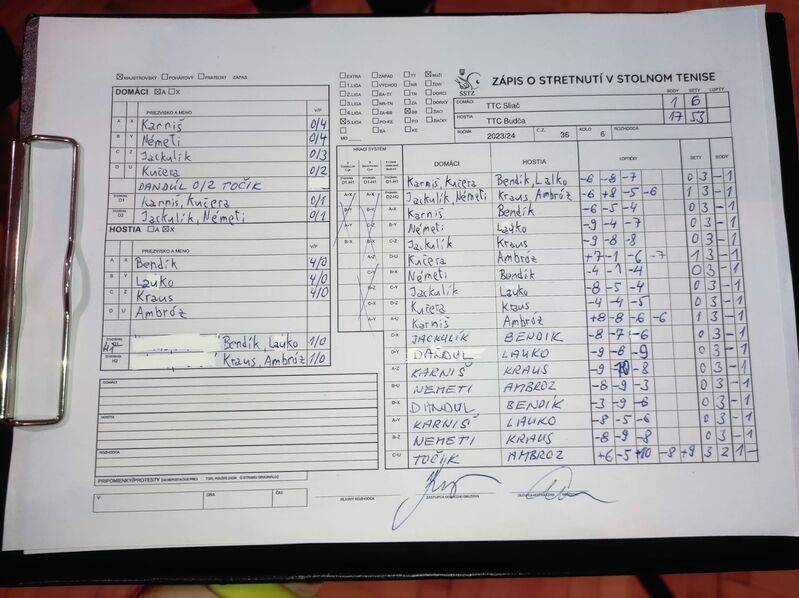 MAJSTROVSKÝ POHÁROVÝ PRIATEĽSKÝ ZÁPAS
DOMÁCI A X
PRIEZVISKO A MENO V/P
A X Karniš 0/4
B Y Németi 0/4
C Z Jackulík 0/3
D U Kučera 0/2
DANDÚL 0/2 TOČIK
D1 Karniš, Kučera 0/1
D2 Jackulík, Németi 0/1
HOSTIA A X
PRIEZVISKO A MENO V/P
A X Bendík 4/0
B Y Lauko 4/0
C Z Kraus 4/0
D U Ambróz
H1 Bendík, Lauko 1/0
H2 Kraus, Ambróz 1/0
DOMÁCI
HOSTIA
ROZHODCA
PRIPOMIENKY/PROTESTY
V DŇA ČAS
EXTRA ZÁPAD TT MUŽI
1.LIGA VÝCHOD NR ŽENY
2.LIGA BA-TT TN DORCI
3.LIGA NR-TN ZA DORKY
4.LIGA ZA-BB BB ŽIACI
5.LIGA PO-KE PO ŽIAČKY
MO BA KE
SSTZ
ZÁPIS O STRETNUTÍ V STOLNOM TENISE
BODY SETY LOPTY
DOMÁCI TTC Sliač 1 6
HOSTIA TTC Budča 17 53
ROČNÍK 2023/24 Č.Z. 36 KOLO 6 ROZHODCA
HRACÍ SYSTÉM
DOMÁCI HOSTIA LOPTIČKY SETY BODY
D1-H1 Karniš, Kučera Bendík, Lalko -6 -8 -7 0 3 - 1
D2-H2 Jackulík, Németi Kraus, Ambróz -6 +8 -5 -6 1 3 - 1
A-X Karniš Bendík -6 -5 -4 0 3 - 1
B-Y Németi Lauko -9 -4 -7 0 3 - 1
C-Z Jackulík Kraus -9 -8 -8 0 3 - 1
D-U Kučera Ambróz +7 -1 -6 -7 1 3 - 1
B-X Németi Bendík -4 -1 -4 0 3 - 1
C-Y Jackulík Lauko -8 -5 -4 0 3 - 1
D-Z Kučera Kraus -4 -4 -5 0 3 - 1
A-U Karniš Ambróz +8 -8 -6 -6 1 3 - 1
C-X JACKULÍK BENDIK -8 -7 -6 0 3 - 1
D-Y DANDUL LAUKO -9 -6 -9 0 3 - 1
A-Z KARNIŠ KRAUS -9 -10 -8 0 3 - 1
B-U NEMETI AMBROZ -8 -9 -3 0 3 - 1
D-X DANDUL BENDÍK -3 -9 -6 0 3 - 1
A-Y KARNIŠ LAUKO -8 -5 -6 0 3 - 1
B-Z NEMETI KRAUS -8 -9 -8 0 3 - 1
C-U TOČIK AMBROZ +6 -5 +10 -8 +9 3 2 1 -
HLAVNÝ ROZHODCA ZÁSTUPCA DOMÁCEHO DRUŽSTVA